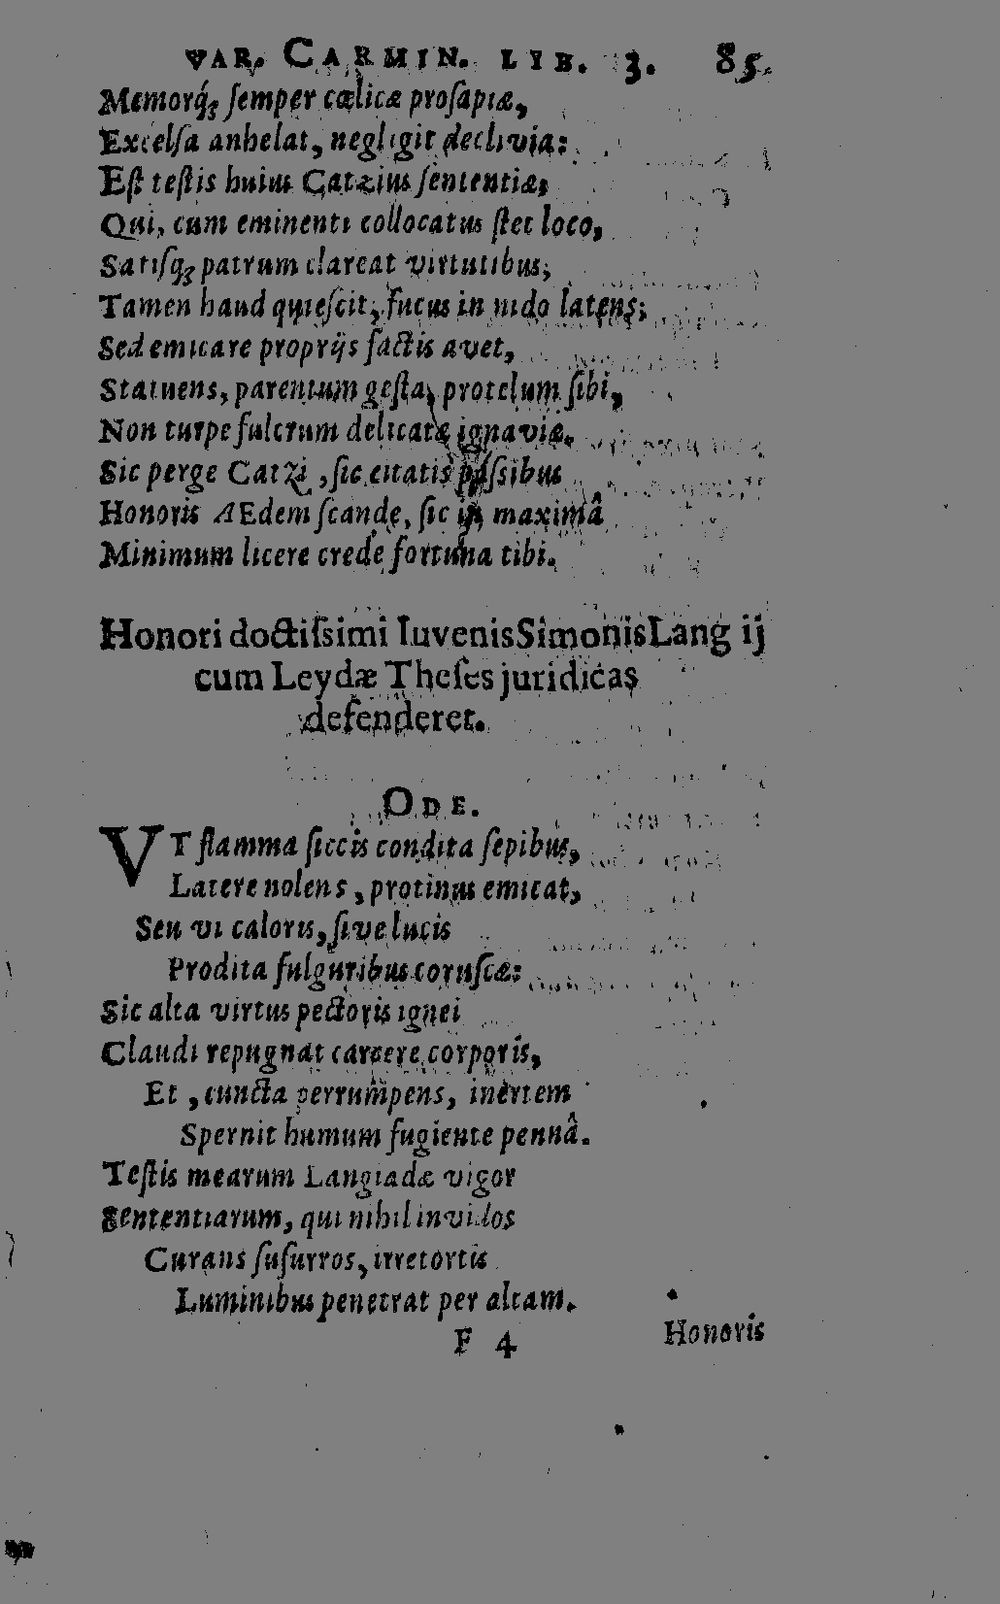 VAR. CARMIN. LIB. 3. 85.
Memorq́ꝫ ſemper cœlicæ proſapiæ,
Excelſa anhelat, negligit declivia:
Eſt teſtis huius Catzius ſententiæ,
Qui, cum eminenti collocatus ſtet loco,
Satiſqꝫ patrum clareat virtutibus;
Tamen haud quieſcit, fucus in nido latens;
Sed emicare proprijs factis avet,
Statuens, parentum geſta, protelum ſibi,
Non turpe fulcrum delicatæ ignaviæ.
Sic perge Catzi, ſic citatis paſsibus
Honoris AEdem ſcande, ſic in maximâ
Minimum licere crede fortuna tibi.
Honori doctiſsimi Iuvenis Simonis Lang ij
cum Leydæ Theſes juridicas
defenderet.
ODE.
VT flamma ſiccis condita ſepibus,
Latere nolens, protinus emicat,
Seu vi caloris, ſive lucis
Prodita fulguribus coruſcæ:
Sic alta virtus pectoris ignei
Claudi repugnat carcere corporis,
Et, cuncta perrumpens, inertem
Spernit humum fugiente pennâ.
Teſtis mearum Langiadæ vigor
Sententiarum, qui nihil invidos
Curans ſuſurros, irretortis
Luminibus penetrat per altam.
F 4
Honoris